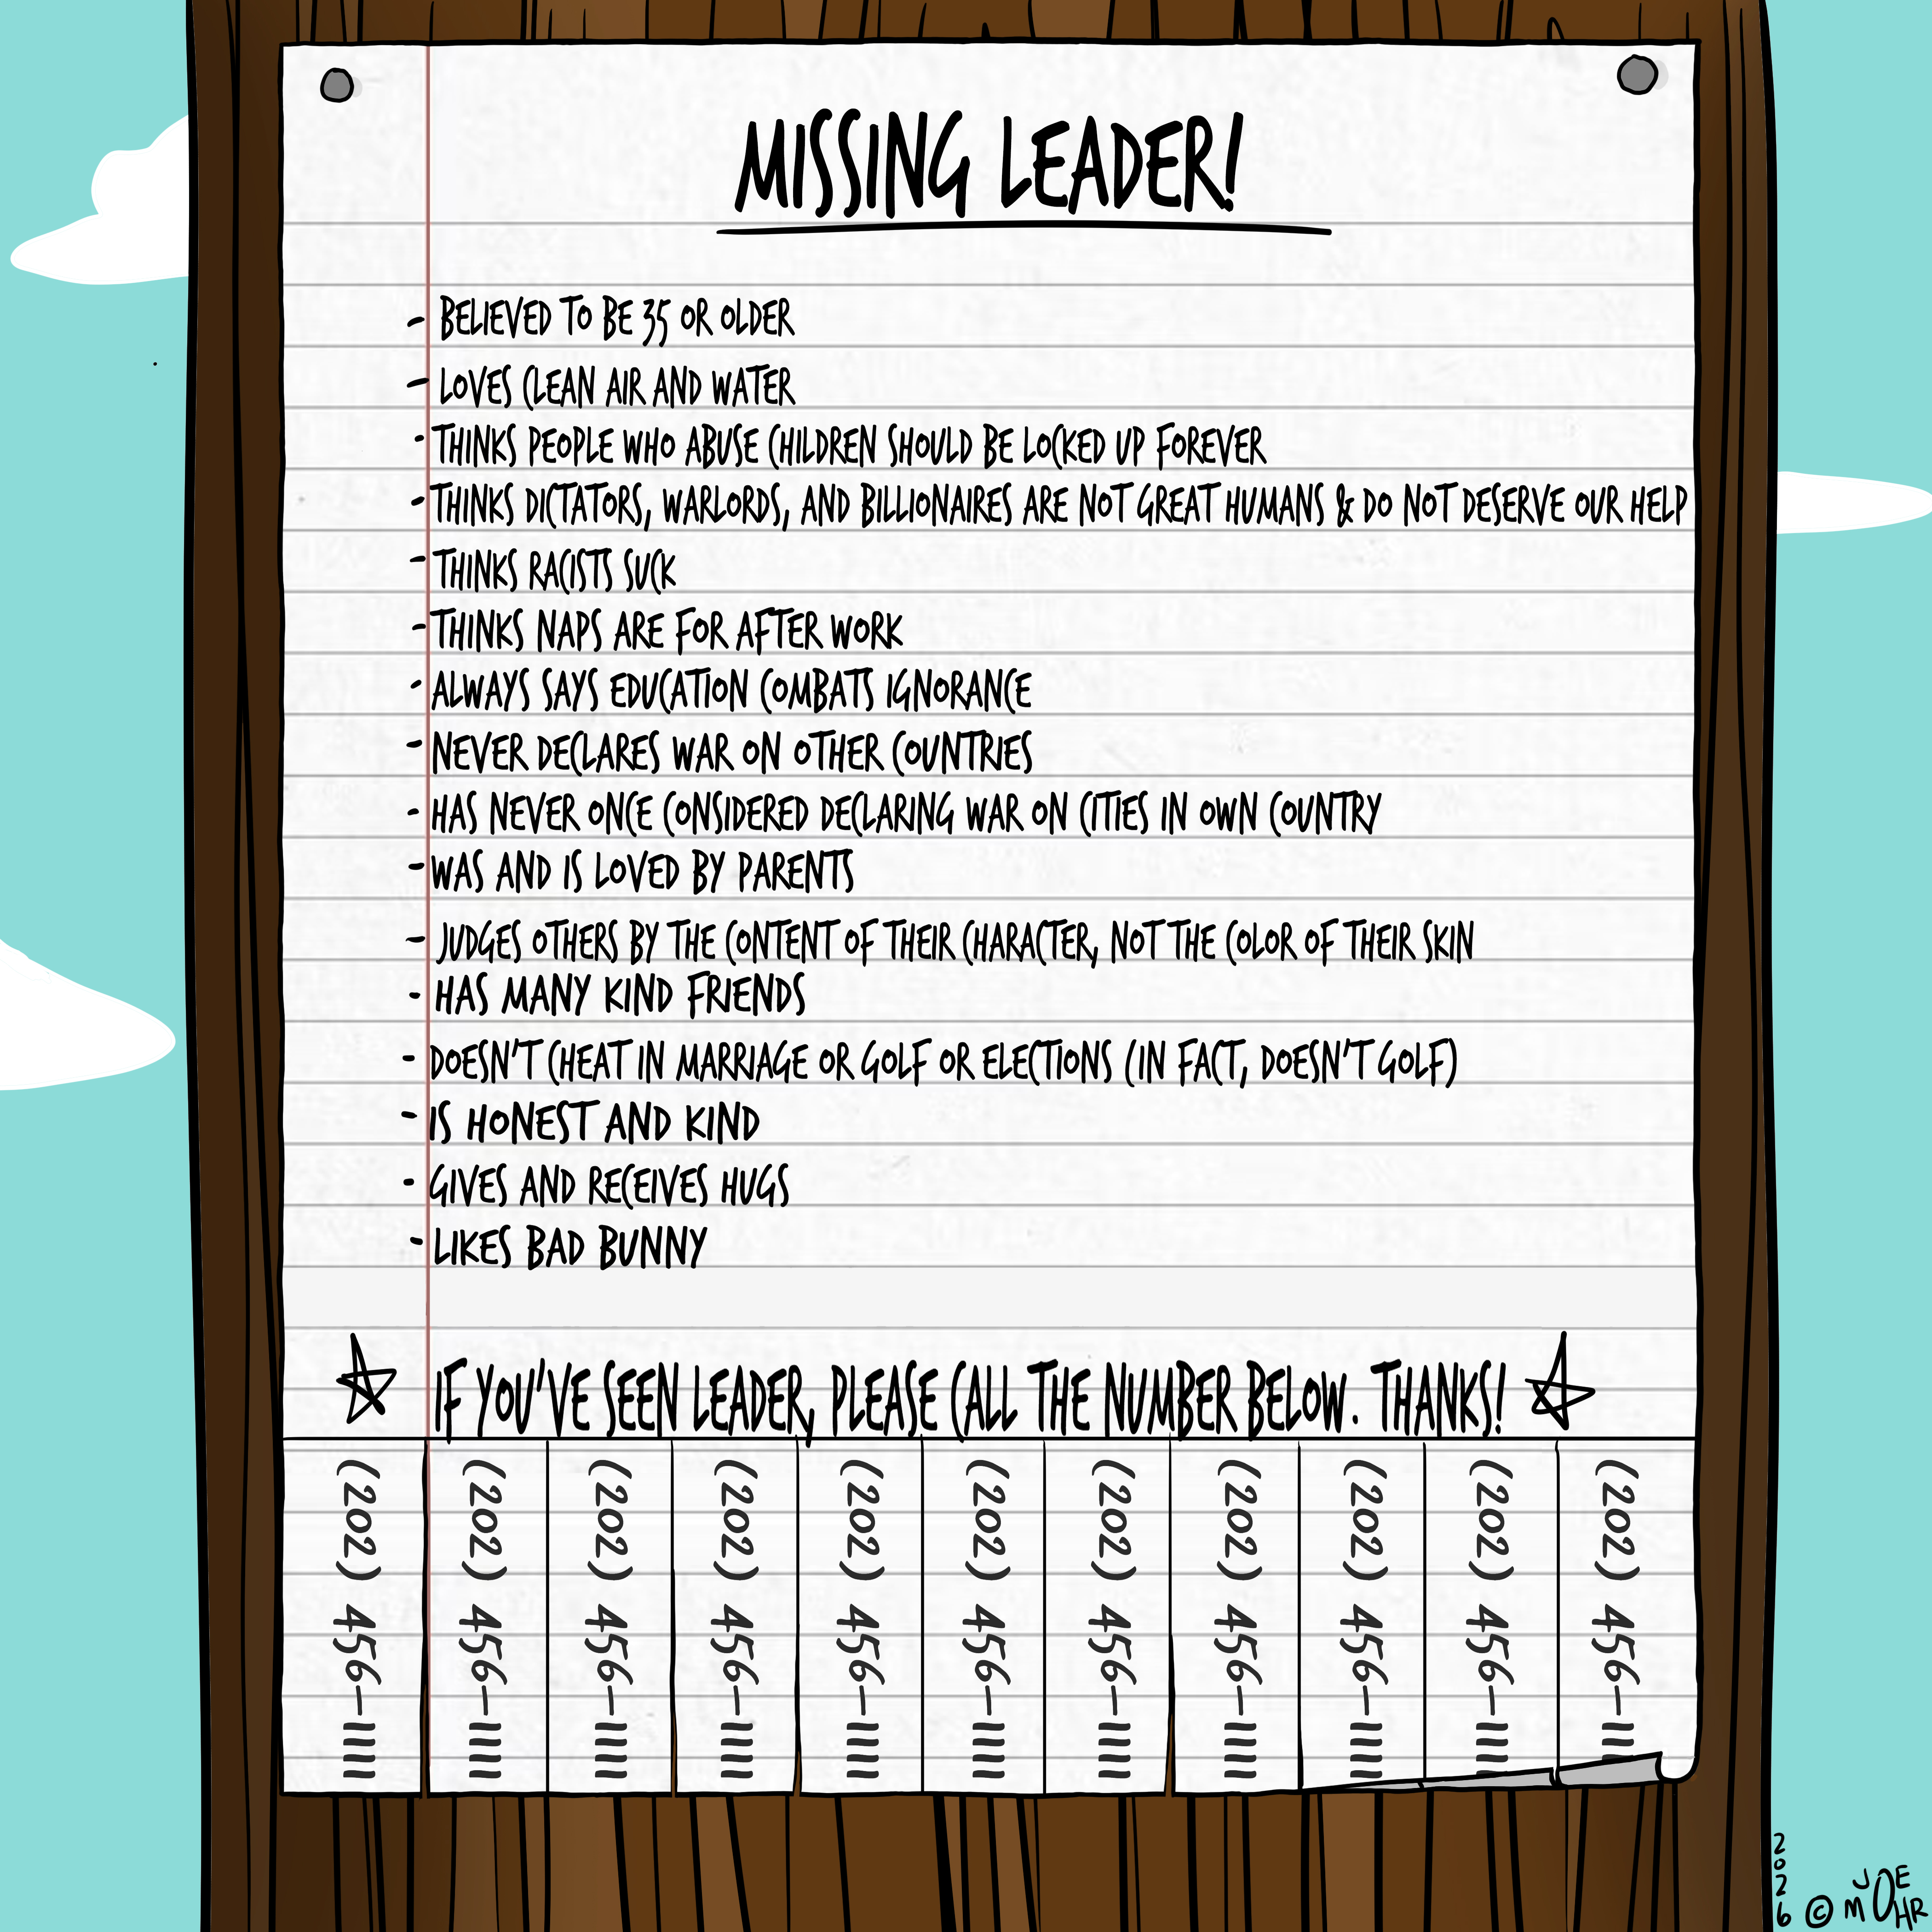 MISSING LEADER!
- BELIEVED TO BE 35 OR OLDER
- LOVES CLEAN AIR AND WATER
- THINKS PEOPLE WHO ABUSE CHILDREN SHOULD BE LOCKED UP FOREVER
- THINKS DICTATORS, WARLORDS, AND BILLIONAIRES ARE NOT GREAT HUMANS & DO NOT DESERVE OUR HELP
- THINKS RACISTS SUCK
- THINKS NAPS ARE FOR AFTER WORK
- ALWAYS SAYS EDUCATION COMBATS IGNORANCE
- NEVER DECLARES WAR ON OTHER COUNTRIES
- HAS NEVER ONCE CONSIDERED DECLARING WAR ON CITIES IN OWN COUNTRY
- WAS AND IS LOVED BY PARENTS
- JUDGES OTHERS BY THE CONTENT OF THEIR CHARACTER, NOT THE COLOR OF THEIR SKIN
- HAS MANY KIND FRIENDS
- DOESN'T CHEAT IN MARRIAGE OR GOLF OR ELECTIONS (IN FACT, DOESN'T GOLF)
- IS HONEST AND KIND
- GIVES AND RECEIVES HUGS
- LIKES BAD BUNNY
IF YOU'VE SEEN LEADER, PLEASE CALL THE NUMBER BELOW. THANKS!
(202) 456-1111
(202) 456-1111
(202) 456-1111
(202) 456-1111
(202) 456-1111
(202) 456-1111
(202) 456-1111
(202) 456-1111
(202) 456-1111
(202) 456-1111
(202) 456-111
2026
© JOE MOHR